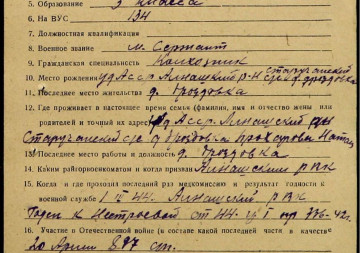 5. Образование 3 класса
6. На ВУС 134
7. Должностная квалификация
8. Военное звание м. Сержант
9. Гражданская специальность Колхозник
10. Место рождения Уд АССР Алнашский р-н Старучанский с/с д. Гроздовка
11. Последнее место жительства д. Гроздовка
12. Где проживает в настоящее время семья (фамилия, имя и отчество жены или
родителей и точный их адрес) Уд АССР Алнашский
д. Гроздовка
13. Последнее место работы и должность д. Гроздовка
14. Каким райгорвоенкоматом и когда призван Алнашским РВК
15. Когда и где проходил последний раз медкомиссию и результат годности к
военной службе 44. Алнашский РВК
Годен к Нестроевой от 44. пр 336-42г.
16. Участие в Отечественной войне (в составе какой последней части и в качестве
20 Армии